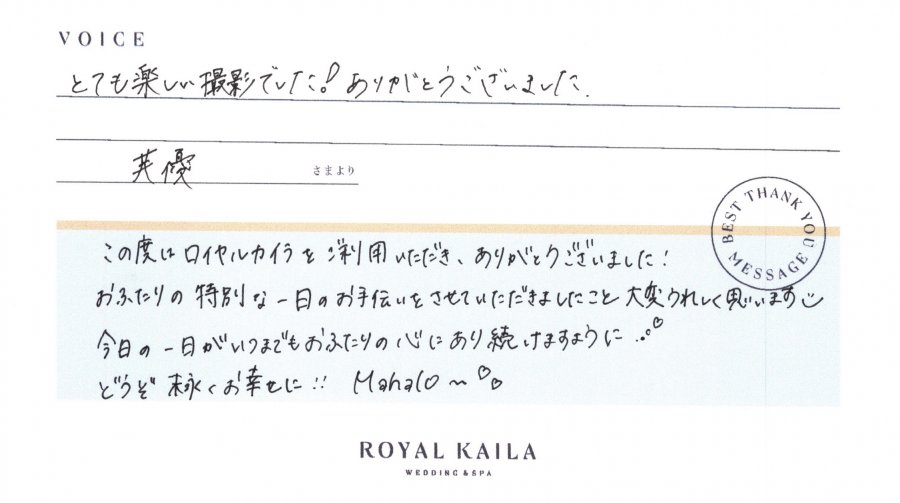 VOICE
とても楽しい撮影でした!ありがとうございました.
英優
さまより
BEST THANK YOU MESSAGE
この度はロイヤルカイラをご利用いただき、ありがとうございました!
おふたりの特別な一日のお手伝いをさせていただきましたこと大変うれしく思います
今日の一日がいつまでもおふたりの心にあり続けますように…♡
どうぞ末永くお幸せに!! Mahalo~♡♡
ROYAL KAILA
WEDDING & SPA